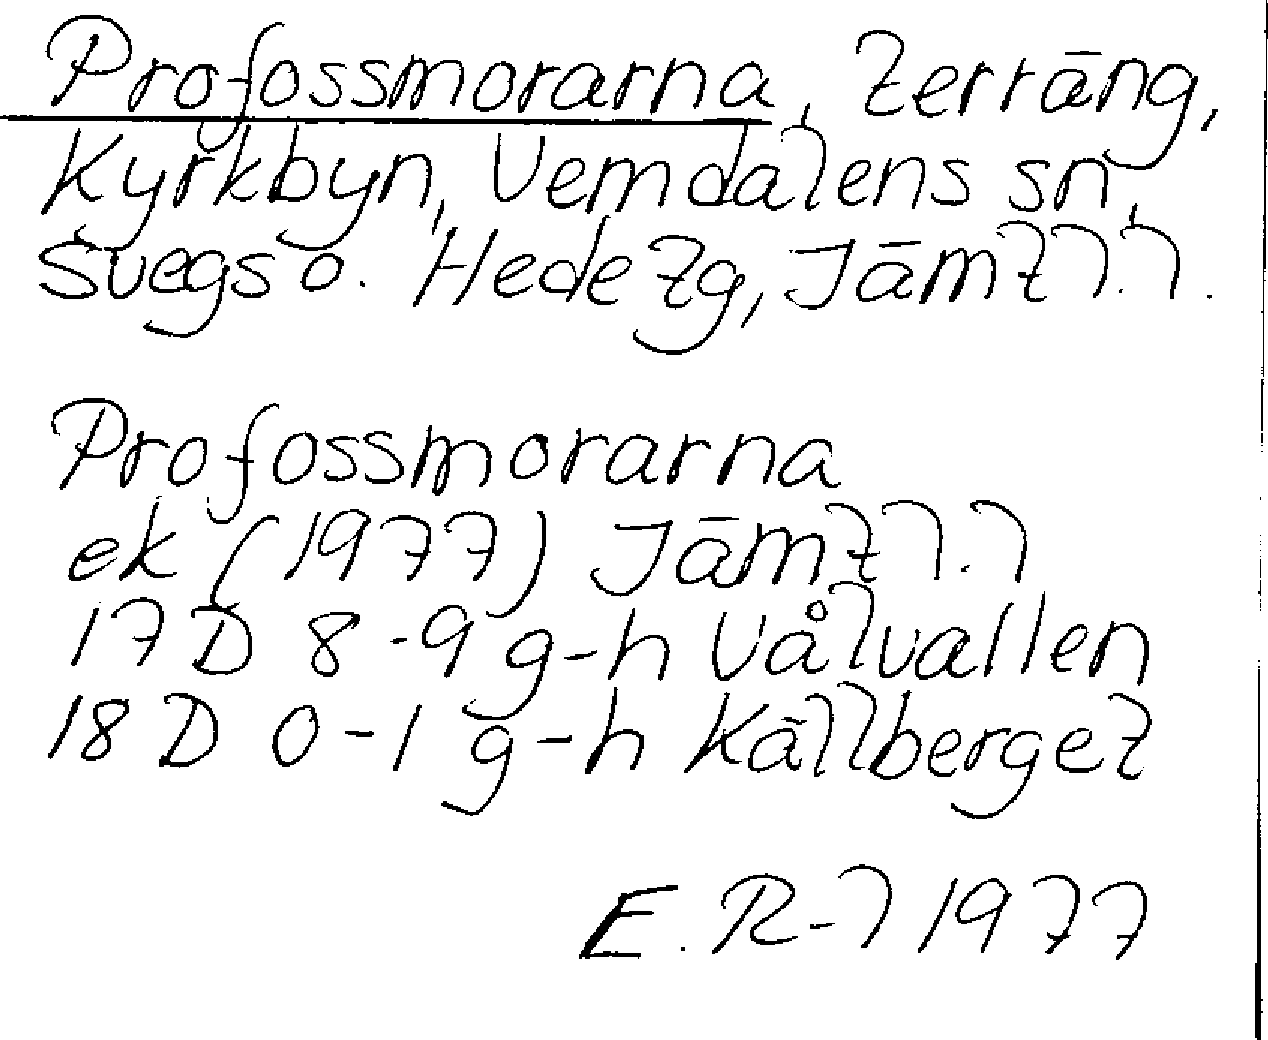 Profossmorarna, terräng,
Kyrkbyn, Vemdalens sn,
Svegs o. Hede tg, Jämtl.l.
Profossmorarna
ek (1977) Jämtl.l
17D 8-9 g-h Vålvallen
18D 0-1 g-h Källberget
E.R-l 1977